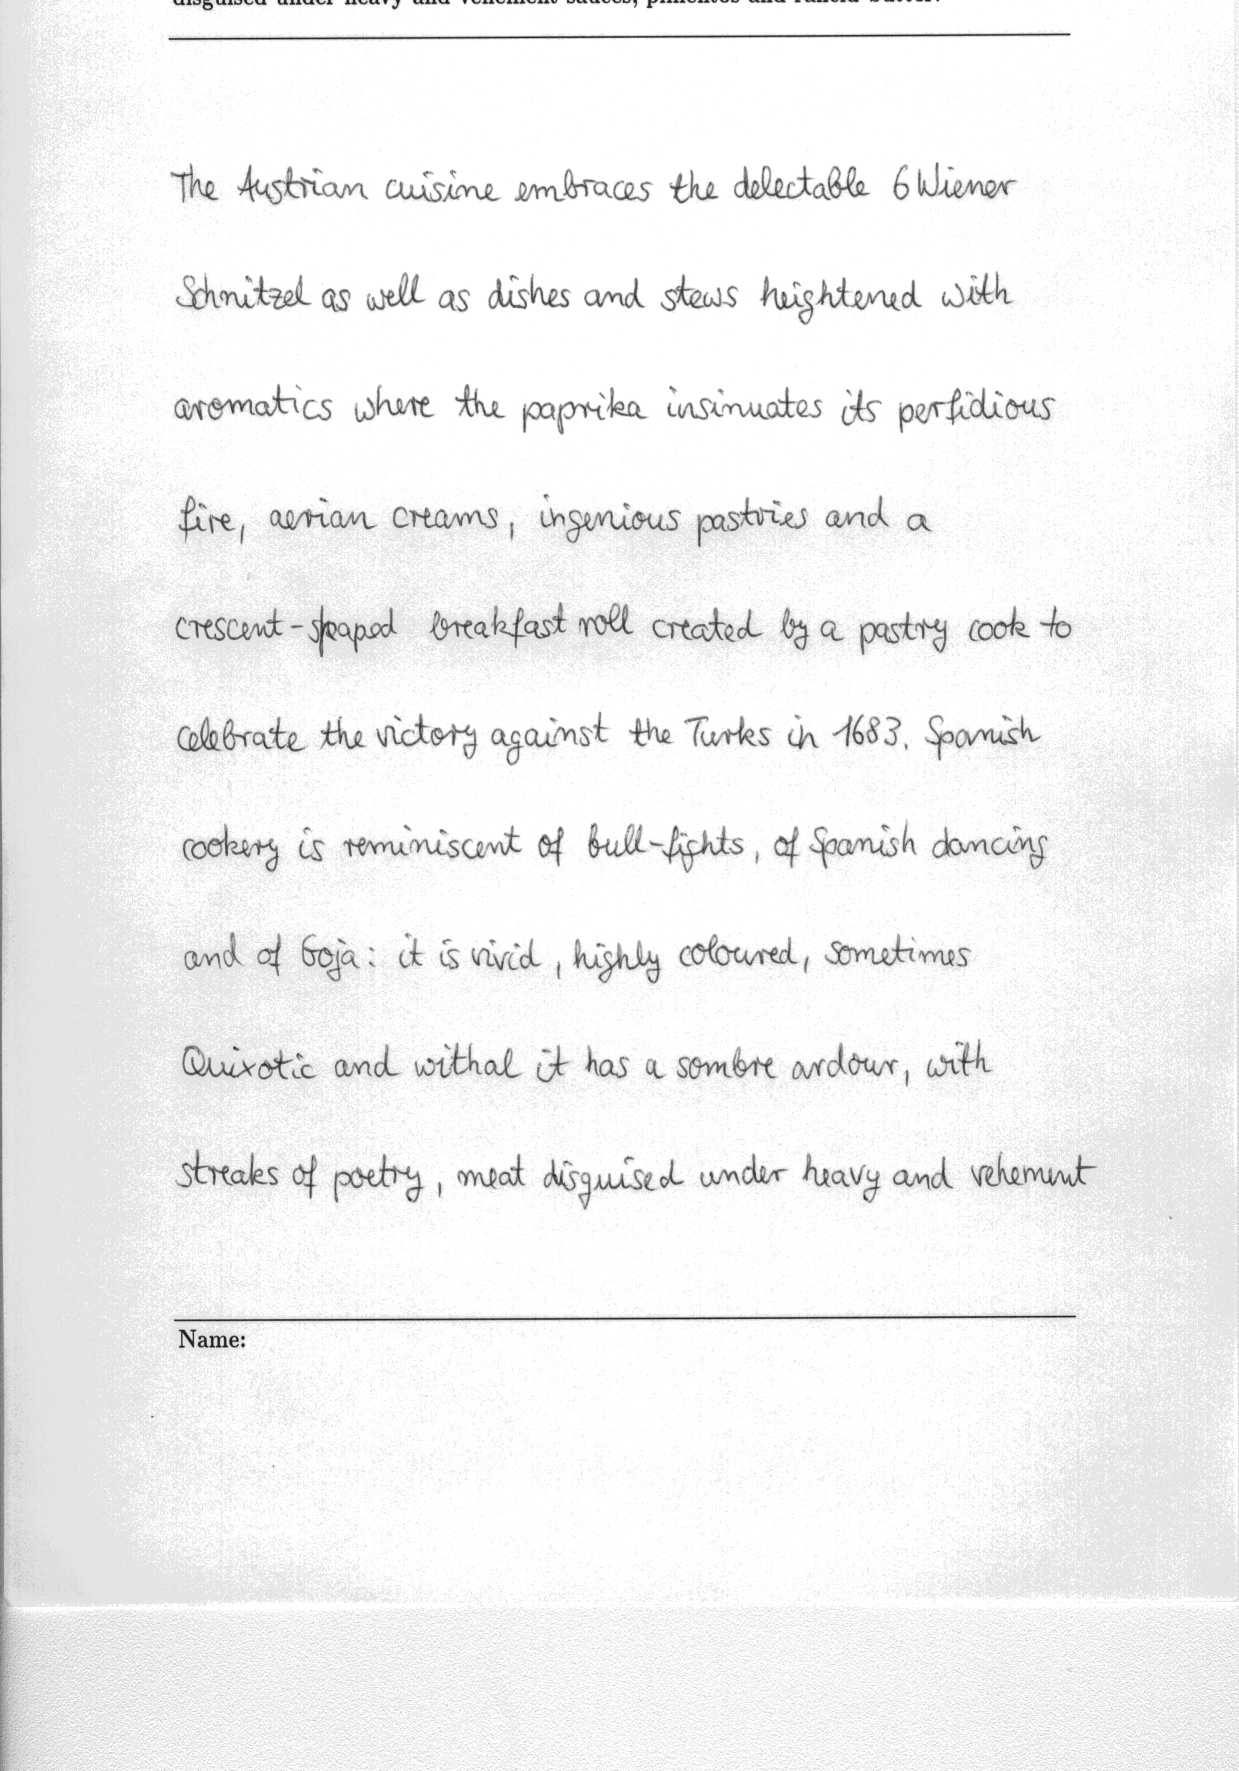 disguised under heavy and vehement sauces, pimentos and rancid butter.
The Austrian cuisine embraces the delectable 6 Wiener
Schnitzel as well as dishes and stews heightened with
aromatics where the paprika insinuates its perfidious
fire, aerian creams, ingenious pastries and a
crescent-shaped breakfast roll created by a pastry cook to
celebrate the victory against the Turks in 1683. Spanish
cookery is reminiscent of bull-fights, of Spanish dancing
and of Goja: it is vivid, highly coloured, sometimes
Quixotic and withal it has a sombre ardour, with
streaks of poetry, meat disguised under heavy and vehement
Name: